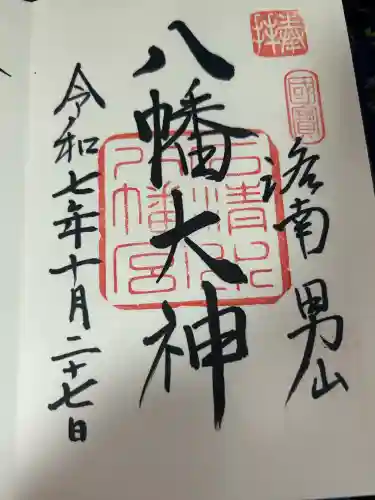 奉拝
國寶
洛南 男山
八幡大神
石清水
八幡宮
令和七年十月二十七日